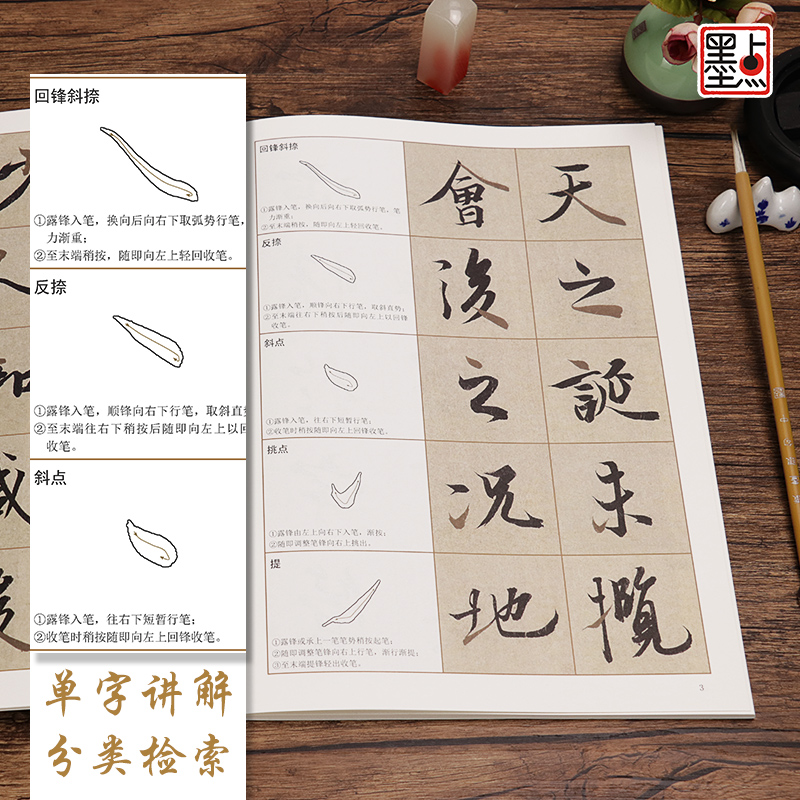 墨点
回锋斜捺
①露锋入笔，换向后向右下取弧势行笔，
力渐重；
②至末端稍按，随即向左上轻回收笔。
反捺
①露锋入笔，顺锋向右下行笔，取斜直势
②至末端往右下稍按后随即向左上以回
收笔。
斜点
①露锋入笔，往右下短暂行笔；
②收笔时稍按随即向左上回锋收笔。
单字讲解
分类检索
回锋斜捺
①露锋入笔，换向后向右下取弧势行笔，笔
力渐重；
②至末端稍按，随即向左上轻回收笔。
會 天
反捺
①露锋入笔，顺锋向右下行笔，取斜直势；
②至末端往右下稍按后随即向左上以回锋
收笔。
後 之
斜点
①露锋入笔，往右下短暂行笔；
②收笔时稍按随即向左上回锋收笔。
之 誕
挑点
①露锋由左上向右下入笔，渐按；
②随即调整笔锋向右上挑出。
况 未
提
①露锋或承上一笔笔势稍按起笔；
②随即调整笔锋向右上行笔，渐行渐提；
③至末端提锋轻出收笔。
地 攬
3